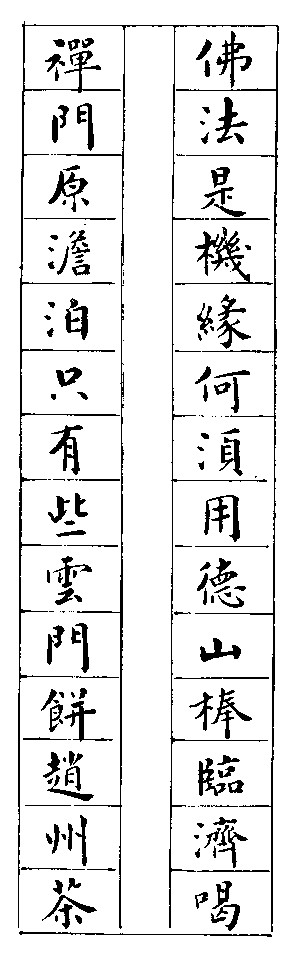 佛法是機緣何須用德山棒臨濟喝
禪門原澹泊只有些雲門餅趙州茶